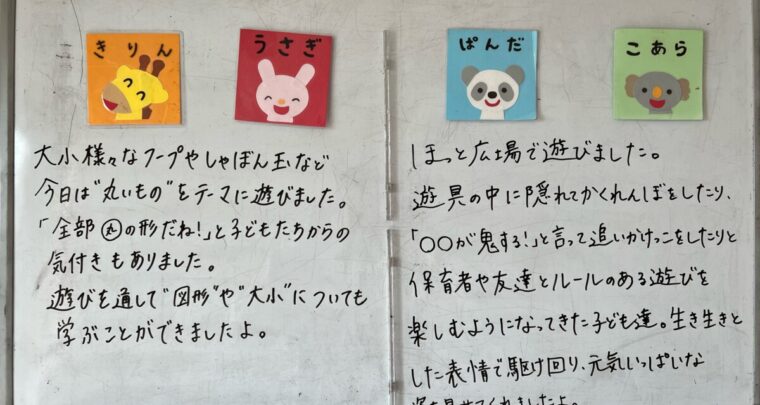 きりん
うさぎ
大小様々なフープやしゃぼん玉など
今日は"丸いもの"をテーマに遊びました。
「全部㊀の形だね!」と子どもたちからの
気付きもありました。
遊びを通して"図形"や"大小"についても
学ぶことができましたよ。
ぱんだ
こあら
ほっと広場で遊びました。
遊具の中に隠れてかくれんぼをしたり、
「〇〇が鬼する!」と言って追いかけっこをしたりと
保育者や友達とルールのある遊びを
楽しむようになってきた子ども達。生き生きと
した表情で駆け回り、元気いっぱいな